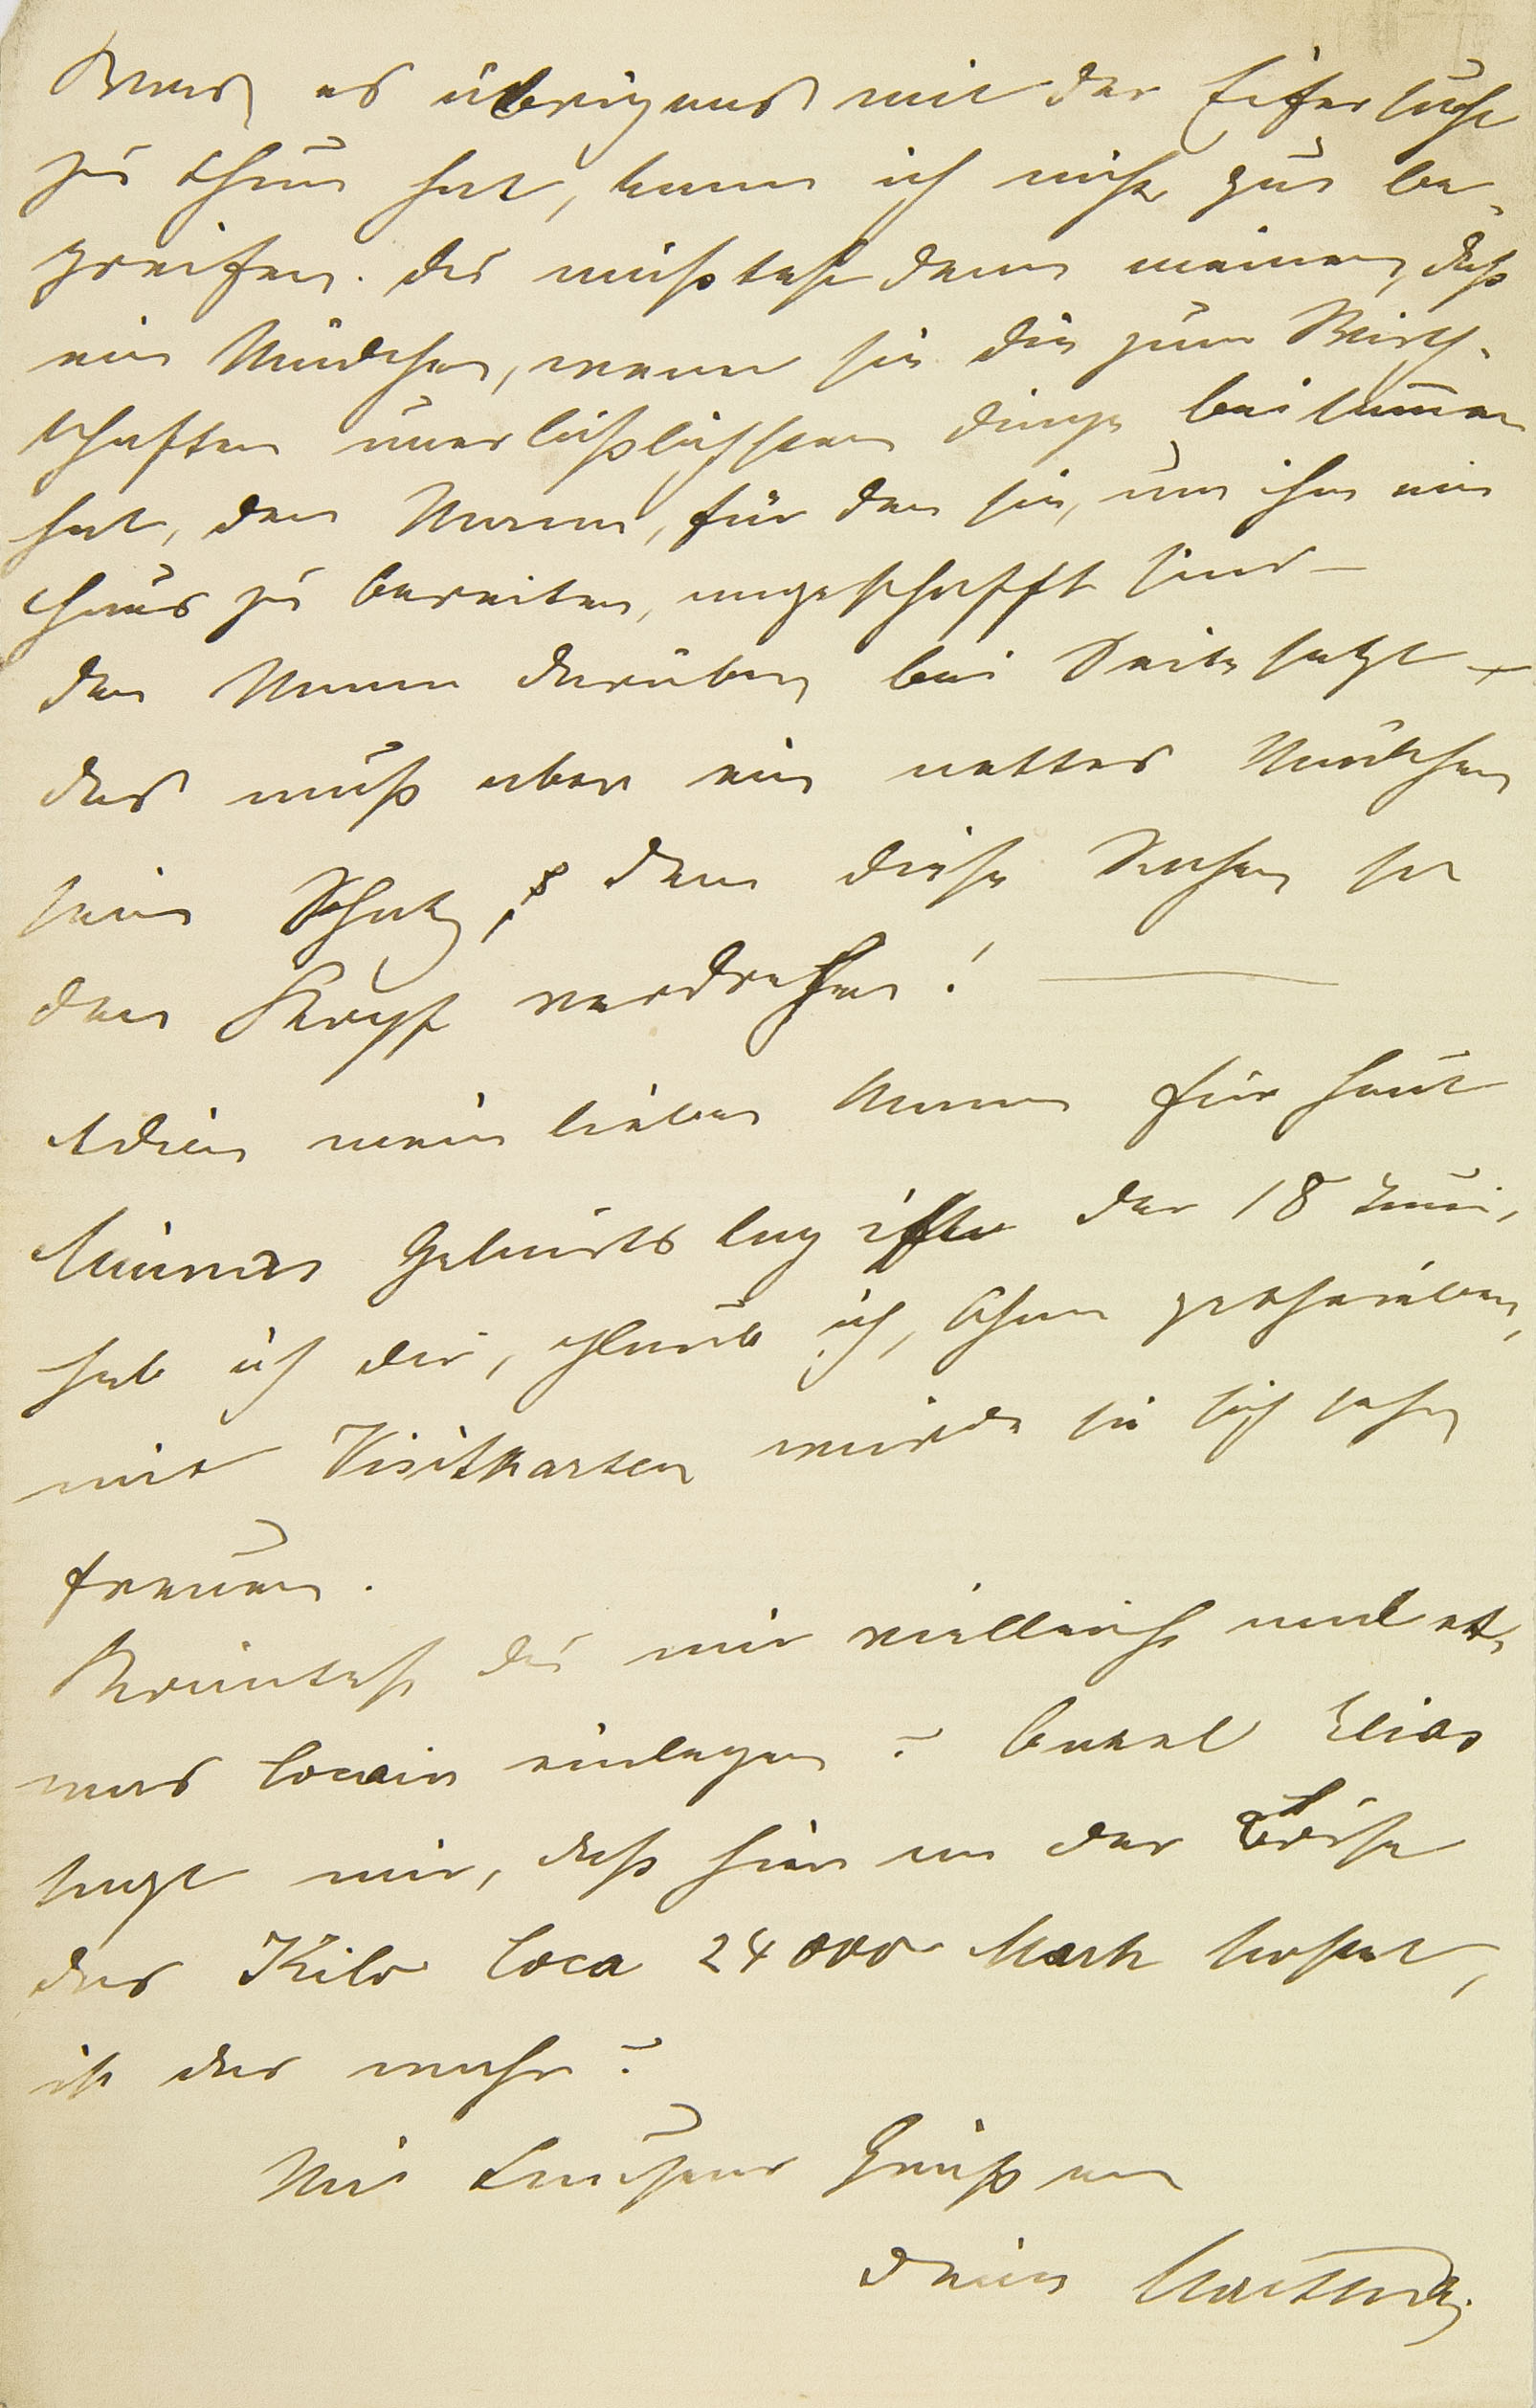 Was es übrigens mit der Eifersucht
zu thun hat, kann ich nicht gut be-
greifen. Du müßtest denn meinen, daß
ein Mädchen, wenn sie die zum Wirth-
schaften unerläßlichsten Dinge beisammen
hat, den Mann, für den sie, um ihm ein
Haus zu bereiten, angeschafft sind –
den Mann darüber bei Seite setzt –
das muß aber ein nettes Mädchen
sein Schatz, dem diese Sachen so
den Kopf verdrehen! –
Adieu mein lieber Mann für heut
Minnas Geburtstag ist der 18 Juni,
hab ich Dir, glaub ich, schon geschrieben,
mit Visitkarten würde sie sich sehr
freuen.
Könntest Du mir vielleicht mal et-
was Cocain einlegen? Onkel Elias
sagt mir, daß hier an der Börse
das Kilo Coca 24000 Mark kostet,
ist das wahr?
Mit tausend Grüßen
Dein Marthch.